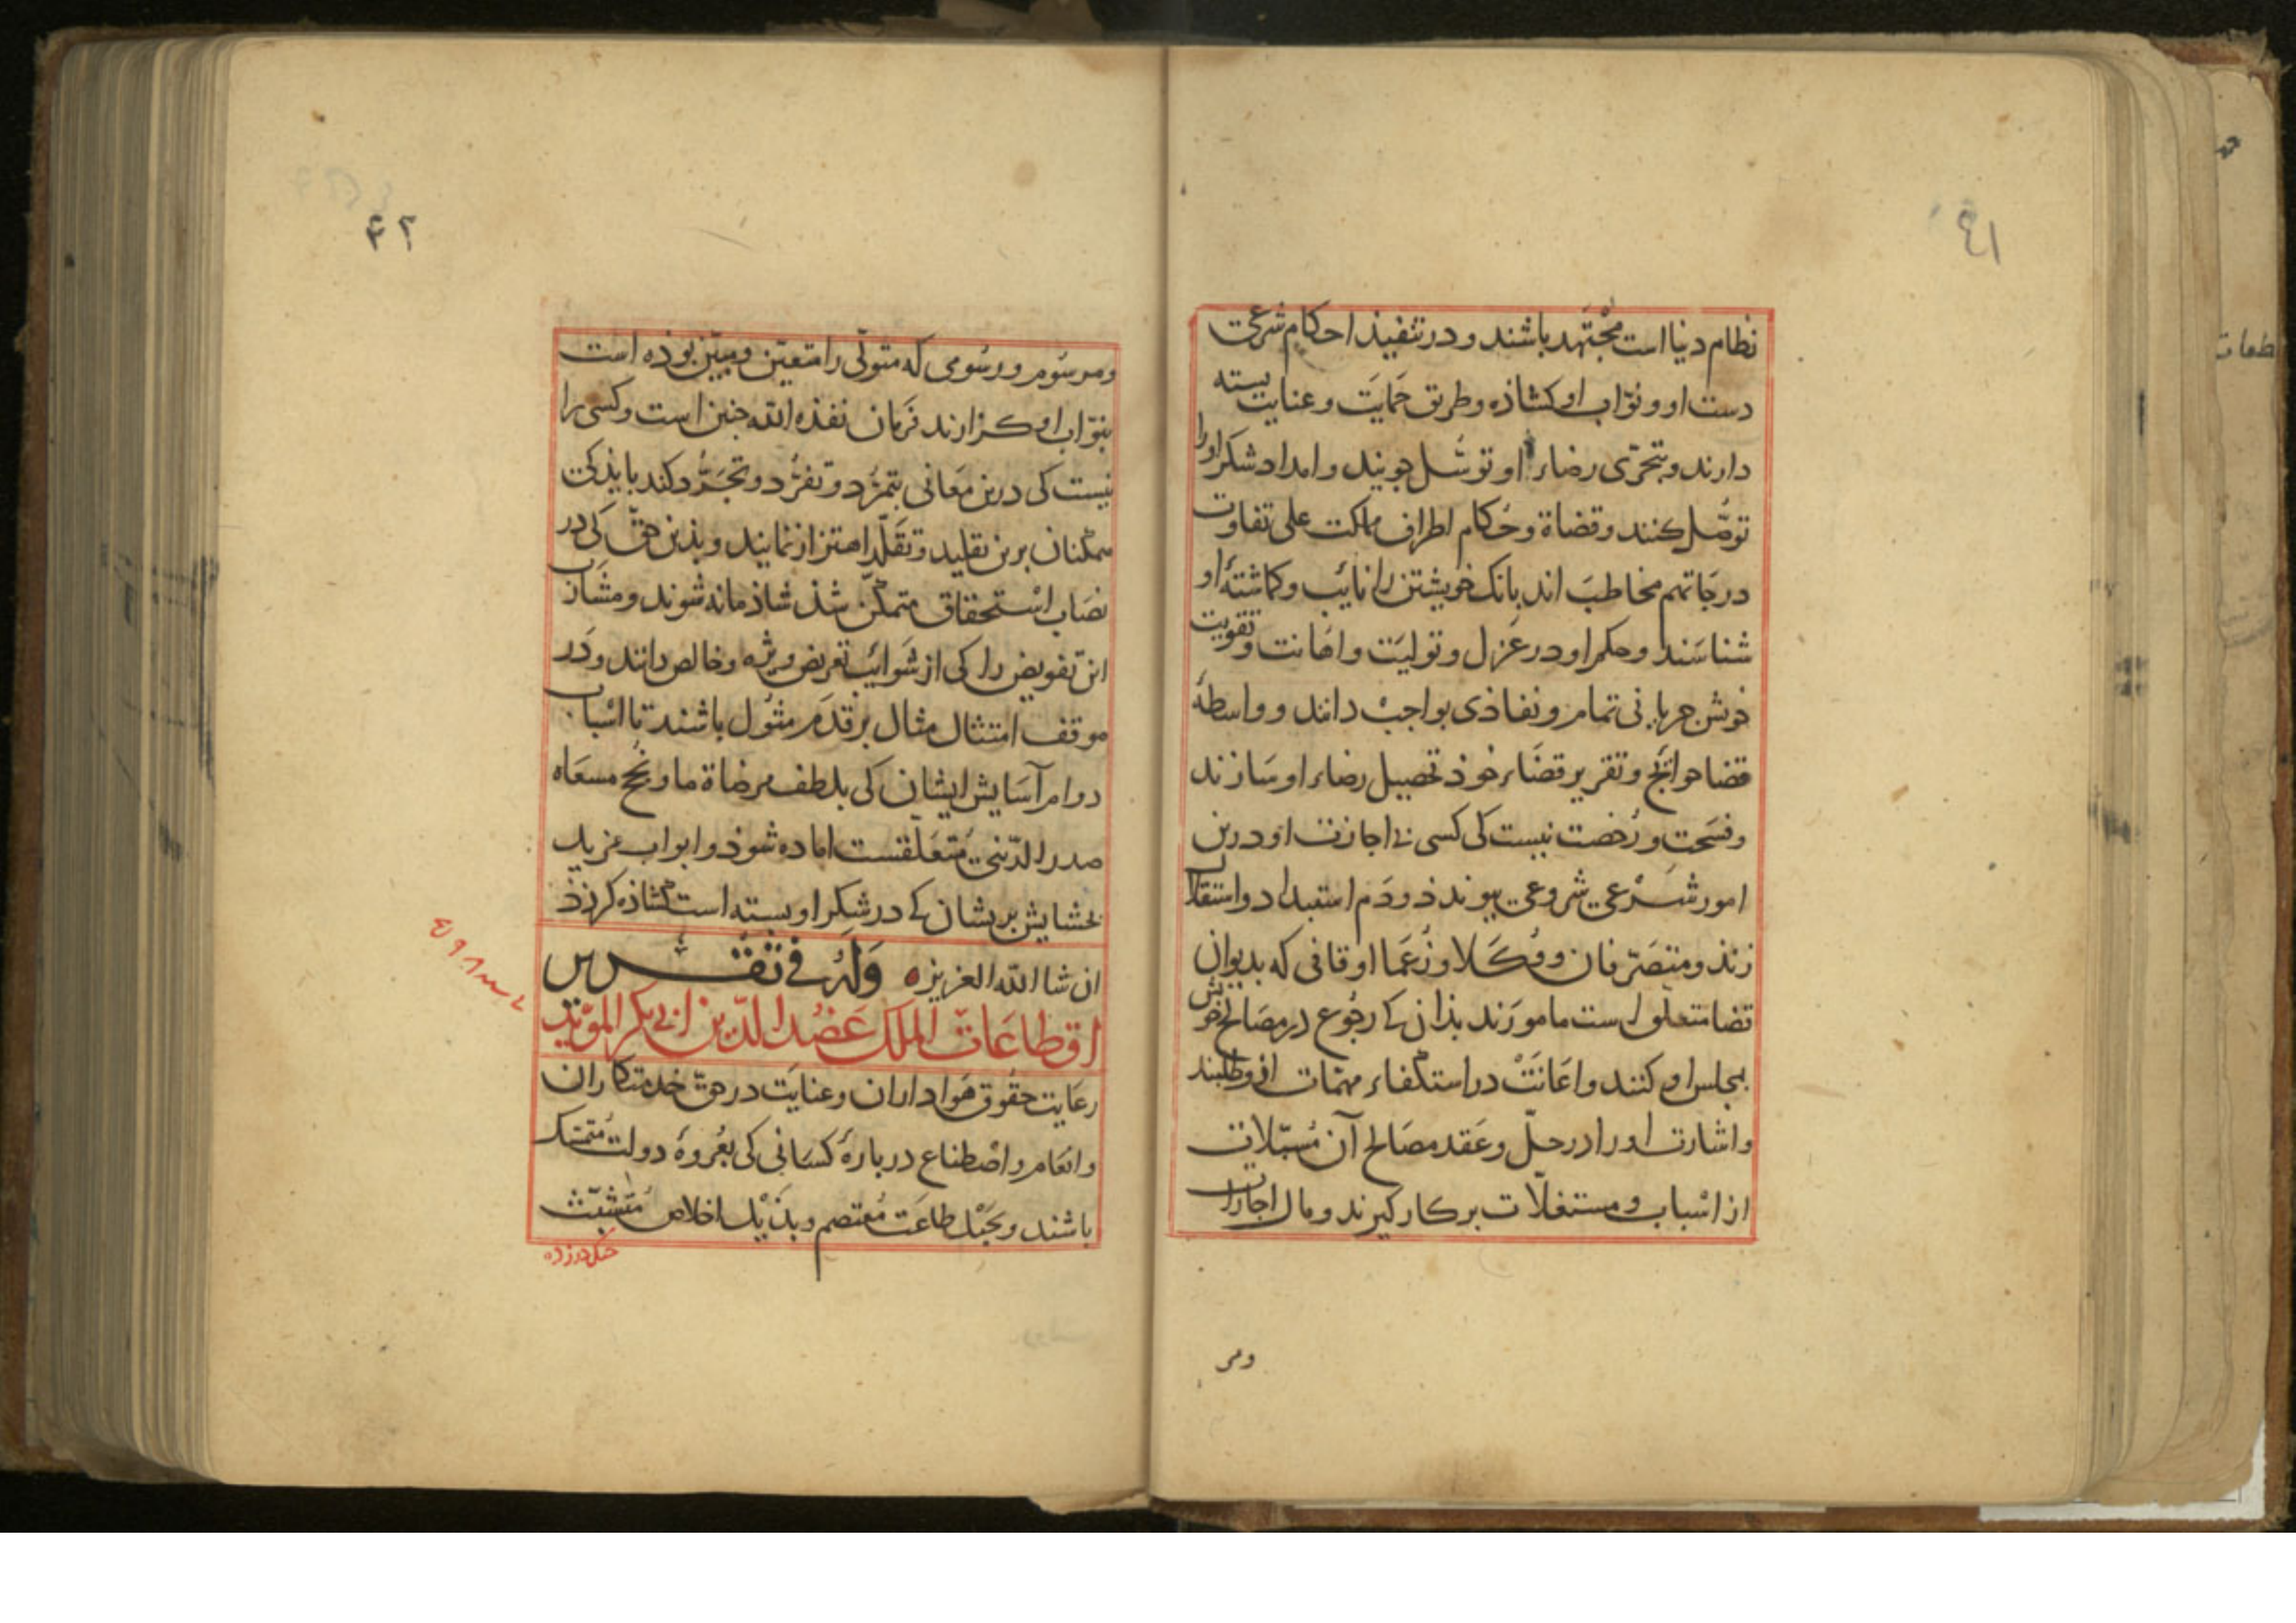 ٤١
نظام دنیا است مجتهد باشند و در تنفیذ احکام شرعی
دست او و نوّاب او کشاذه و طریق حمایت و عنایت بسته
دارند و بتحرّی رضاء او توسّل جویند و امداد شکر او را
توصّل کنند و قضاة و حکام اطراف ملکت علی تفاوت
درجاتهم مخاطب اند بانک خویشتن را نائب و کماشتهٔ او
شناسند و حکم او در عزل و تولیت و اهانت و تقویت
خوش جریانی تمام و نفاذی بواجب دانند و واسطهٔ
قضا حوائج و تقریر قضاء خوذ تحصیل رضاء او سازند
و فسحت و رخصت نیست کی کسی بی اجازت او درین
امور شرعی شروعی پیوندذ و دم استبداد و استقلال
زند و متصرّفان و وکلا و زعما اوقافی که بدیوان
قضا متعلق است مامورند بذان کی رجوع در مصالح خویش
بمجلس او کنند و اعانت در استکفاء مهمّات ازو طلبند
و اشارت او را در حلّ و عقد مصالح آن مسبّلات
از اسباب و مستغلّات بر کار کیرند و مال اجارات
ومر
٤٢
و مرسوم و رسومی که متولّی را متعیّن و مبیّن بوده است
بنوّاب او کزارند فرمان نفذه الله چنین است و کسی را
نیست کی درین معانی بتمرّد و تفرّد و تجرّد کند باید کی
ممکنان برین تقلید و تقلّد اهتزاز نمایند و بذین حقّ کی در
نصاب استحقاق متمکّن شذ شاذمانه شوند و مشارب
این تفویض را کی از شوائب تعریض ویژه و خالص دانند و در
موقف امتثال مثال بر قدم مثول باشند تا اسباب
دوام آسایش ایشان کی بلطف مرضاة ما و نجح مسعاه
صدر الدّینی متعلقست اماده شوذ و ابواب مزید
بخشایش بریشان کی در شکر او بسته است کشاذه کرذذ
ان شا الله العزیز وَلَهُ فی تقریر
اقطاعات الملک عضد الدین ابی بکر المؤید
رعایت حقوق هواداران و عنایت در حق خدمتکاران
و انعام و اصطناع دربارهٔ کسانی کی بعروهٔ دولت متمسّک
باشند و بحبل طاعت معتصم و بذیل اخلاص متشبّث